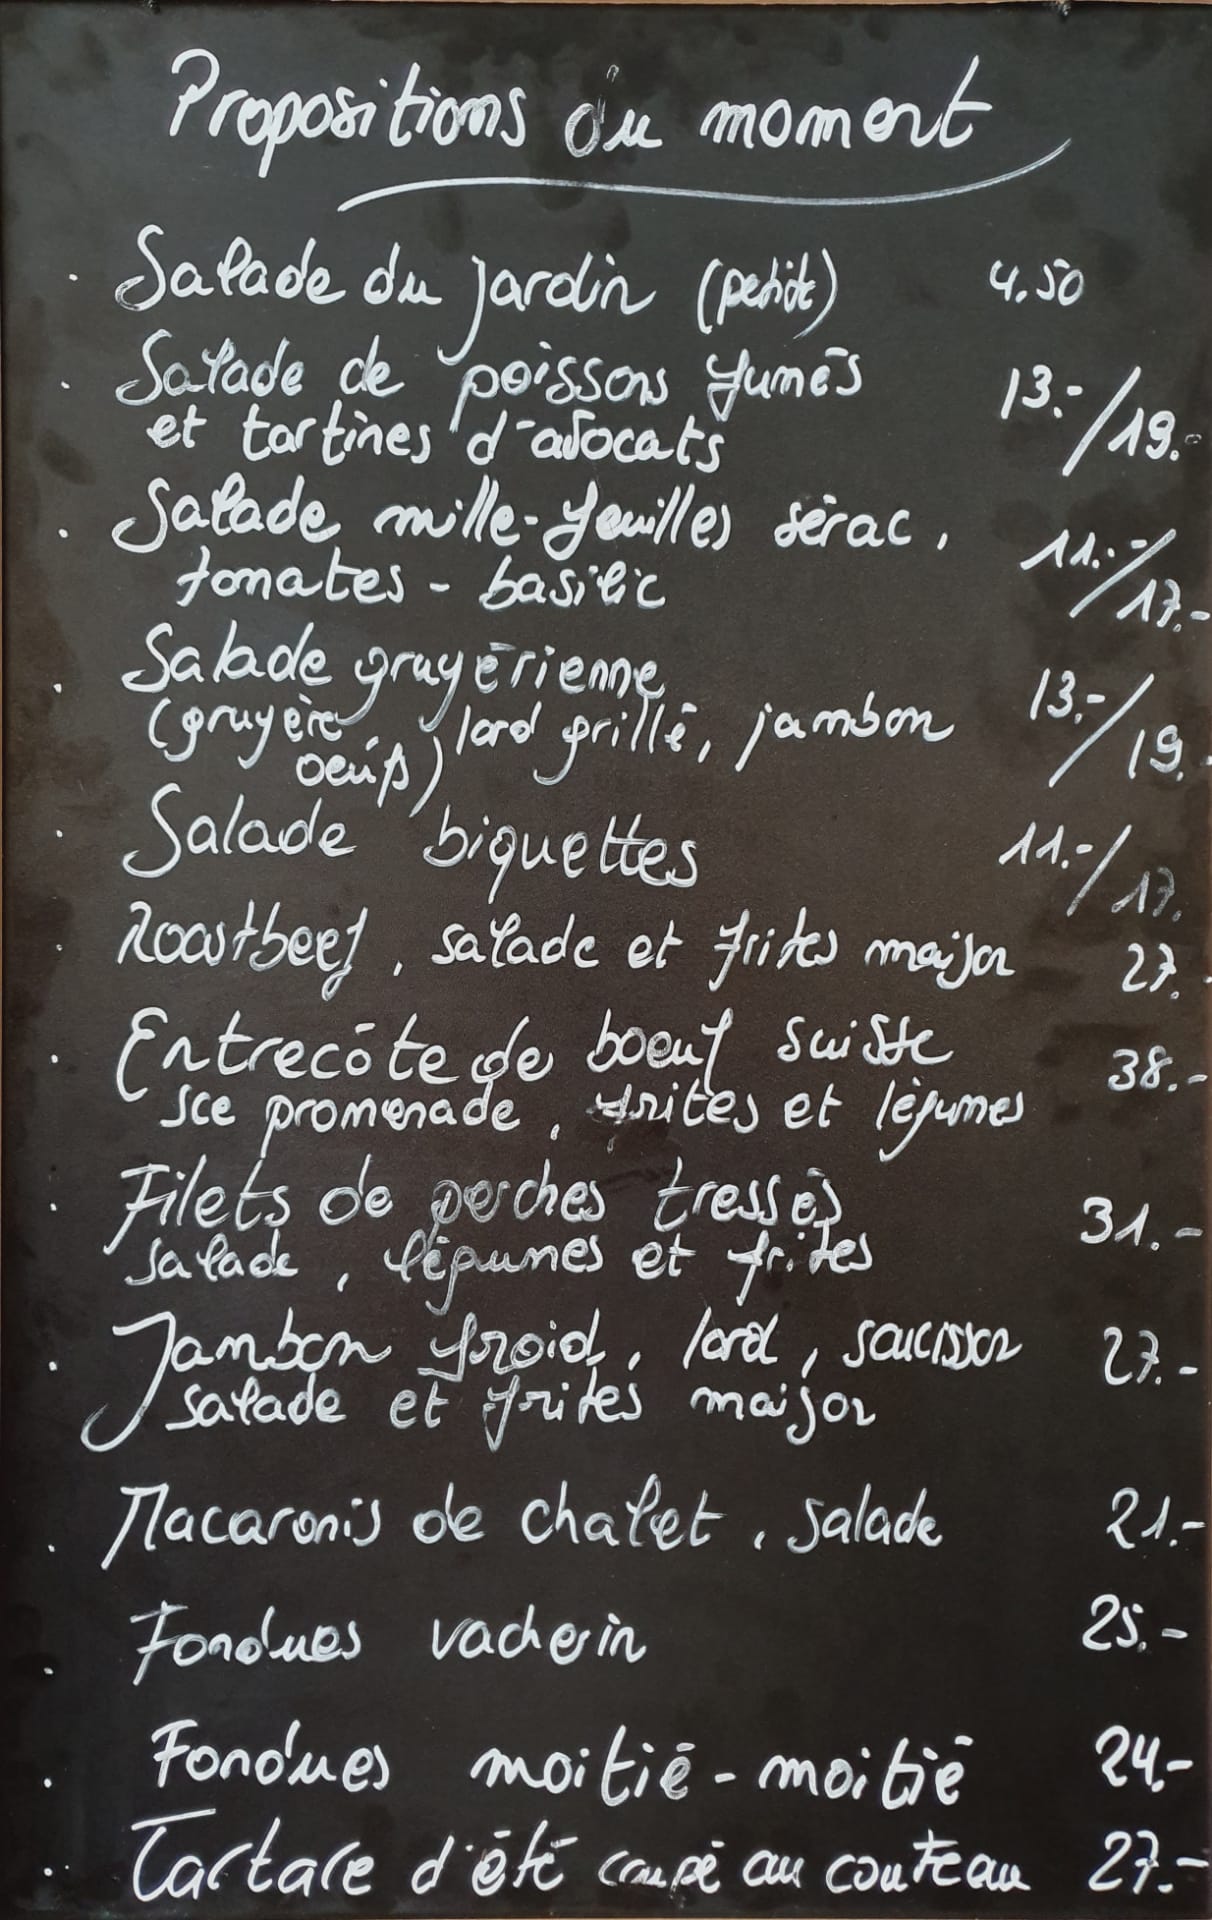 Propositions du moment
. Salade du jardin (petit) 4.50
. Salade de poissons fumés 13.-/19.-
et tartines d'avocats
. Salade mille-feuilles sérac, 11.-/17.-
tomates - basilic
. Salade gruyérienne 13.-/19.-
(gruyère, lard grillé, jambon
oeufs)
. Salade biquettes 11.-/17.
. Roastbeef, salade et frites maison 27.-
. Entrecôte de boeuf suisse 38.-
sce promenade, frites et légumes
. Filets de perches tressés 31.-
salade, légumes et frites
. Jambon froid, lard, saucisson 27.-
salade et frites maison
. Macaronis de chalet, salade 21.-
. Fondues vacherin 25.-
. Fondues moitié-moitié 24.-
. Tartare d'été coupé au couteau 27.-